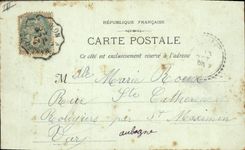 RÉPUBLIQUE FRANÇAISE
CARTE POSTALE
Ce côté est exclusivement réservé à l'adresse
Mlle Marie Roux
Rue Ste Catherine
par St Maximin
Var
aubagne